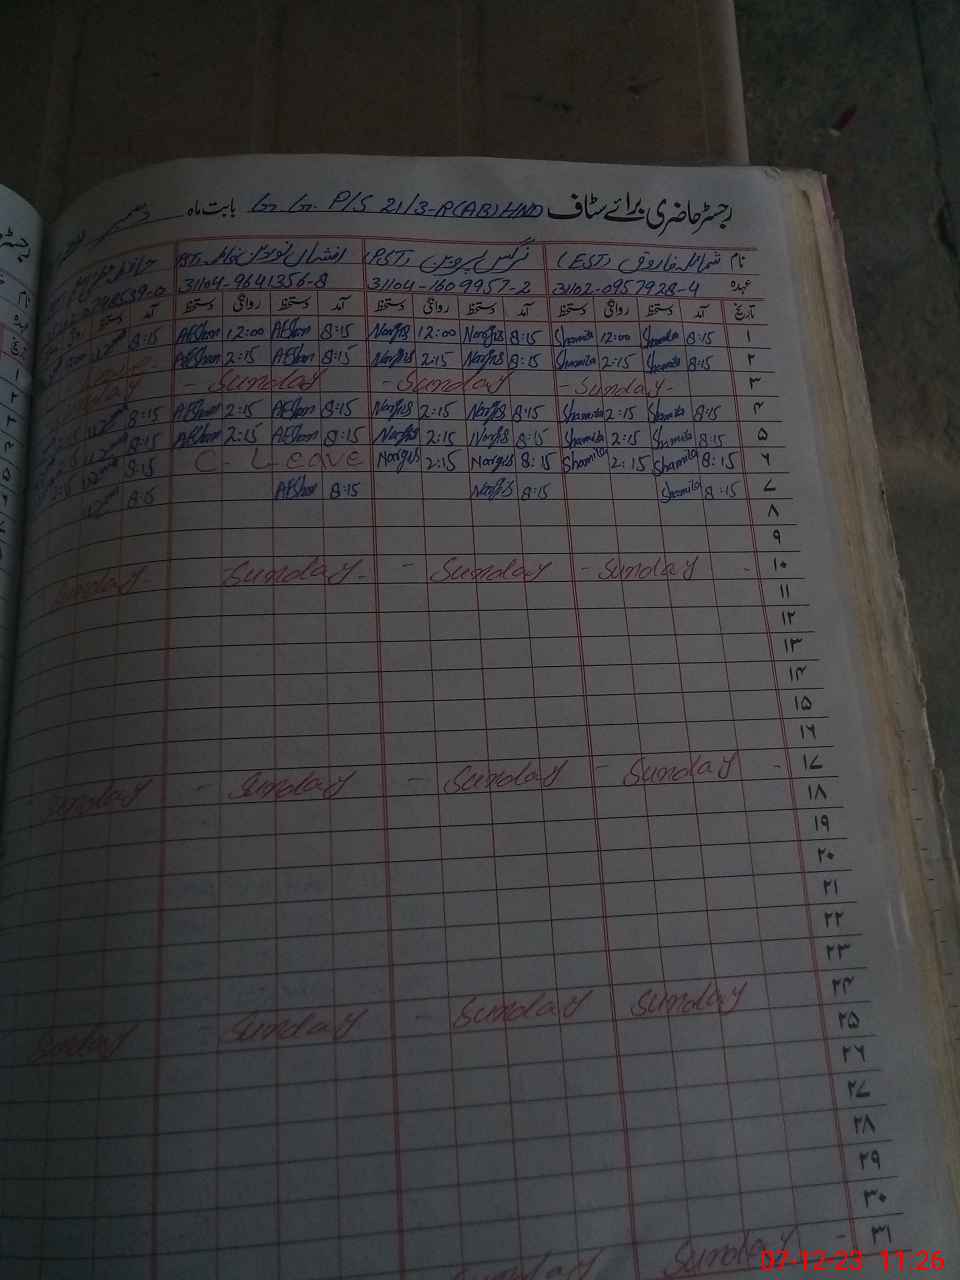 رجسٹر حاضری برائے سٹاف G. G. P/S 21/3-R(AB) HND بابت ماہ دسمبر
نام شمائلہ فاروق (EST) نرگس پروین (PST)
عہدہ 31102-0957928-4 31104-1609957-2 31104-9641356-8
تاریخ آمد دستخط روانگی دستخط آمد دستخط روانگی دستخط آمد دستخط روانگی دستخط آمد دستخط
۱ 8:15 Shamila 12:00 Shamila 8:15 Nargis 12:00 Nargis 8:15 Afshan 12:00 Afshan 8:15
۲ 8:15 Shamila 2:15 Shamila 8:15 Nargis 2:15 Nargis 8:15 Afshan 2:15 Afshan
۳ - Sunday - - Sunday - Sunday
۴ 8:15 Shamila 2:15 Shamila 8:15 Nargis 2:15 Nargis 8:15 Afshan 2:15 Afshan 8:15
۵ 8:15 Shamila 2:15 Shamila 8:15 Nargis 2:15 Nargis 8:15 Afshan 2:15 Afshan 8:15
۶ 8:15 Shamila 2:15 Shamila 8:15 Nargis 2:15 Nargis C - Leave 8:15
۷ 8:15 Shamila 8:15 Nargis 8:15 Afshan 8:15
۸
۹
۱۰ - Sunday - Sunday - Sunday - Sunday -
۱۱
۱۲
۱۳
۱۴
۱۵
۱۶
۱۷ - Sunday - Sunday - Sunday - Sunday
۱۸
۱۹
۲۰
۲۱
۲۲
۲۳
۲۴ Sunday - Sunday - Sunday Sunday
۲۵
۲۶
۲۷
۲۸
۲۹
۳۰
۳۱ - Sunday Sunday
07-12-23 11:26